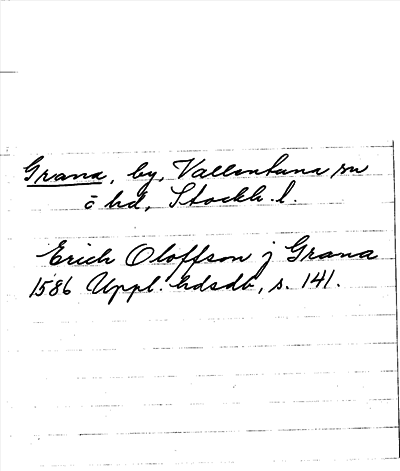 Grana, by, Vallentuna sn
o hd, Stockh. l.
Erich Oloffson j Grana
1586 Uppl. hdsdb, s. 141.